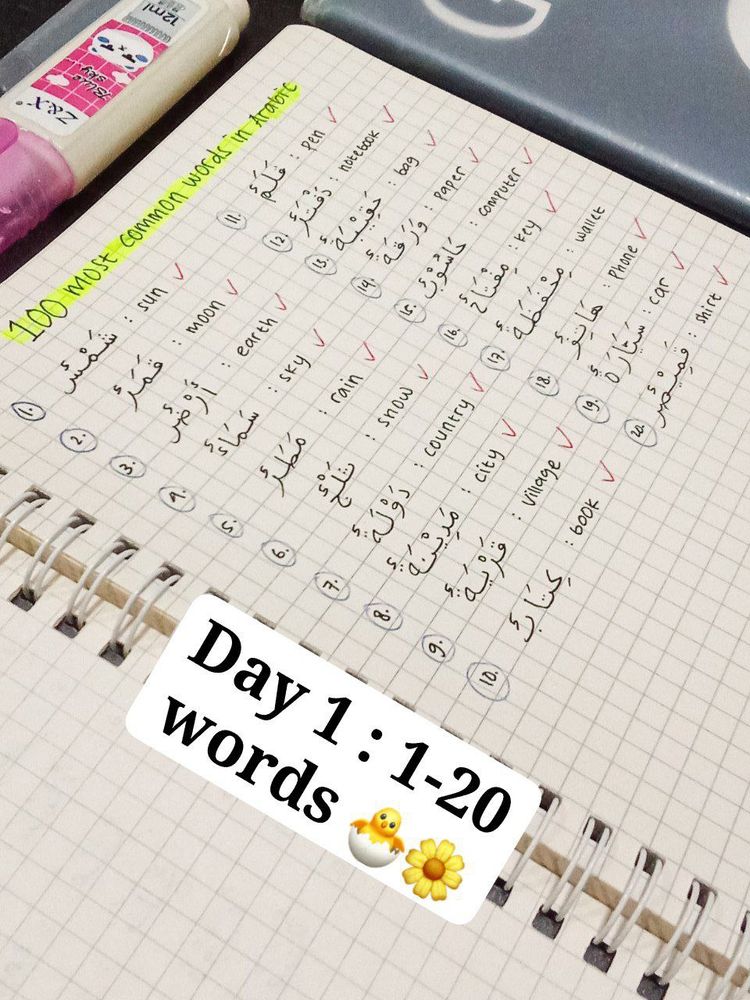 100 most common words in Arabic
1. شَمْسٌ : sun ✓
2. قَمَرٌ : moon ✓
3. أَرْضٌ : earth ✓
4. سَمَاءٌ : sky ✓
5. مَطَرٌ : rain ✓
6. ثَلْجٌ : snow ✓
7. دَوْلَةٌ : country ✓
8. مَدِيْنَةٌ : city ✓
9. قَرْيَةٌ : village ✓
10. كِتَابٌ : book ✓
11. قَلَمٌ : pen ✓
12. دَفْتَرٌ : notebook ✓
13. حَقِيْبَةٌ : bag ✓
14. وَرَقَةٌ : paper ✓
15. حَاسُوْبٌ : computer ✓
16. مِفْتَاحٌ : key ✓
17. مِحْفَظَةٌ : wallet
18. هَاتِفٌ : phone ✓
19. سَيَّارَةٌ : car ✓
20. قَمِيْصٌ : shirt ✓
Z&X
Blue sky
12ml
G
Day 1 : 1-20
words 🐣🌼